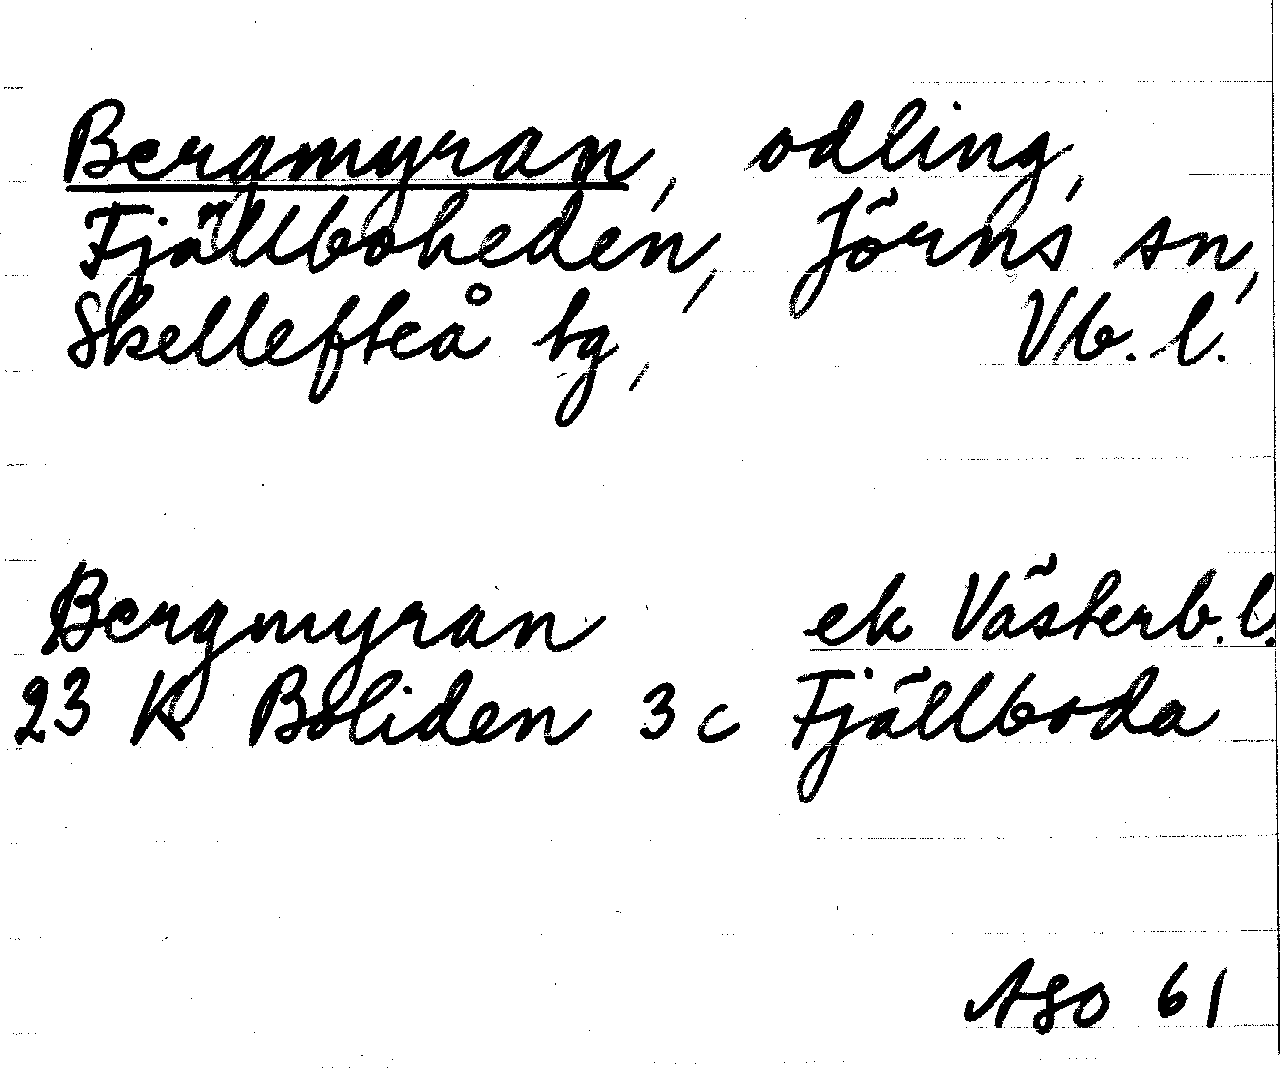 Bergmyran, odling,
Fjällboheden, Jörns sn,
Skellefteå tg, Vb. l.
Bergmyran ek Västerb. l.
23 K Boliden 3 c Fjällboda
ASO 61